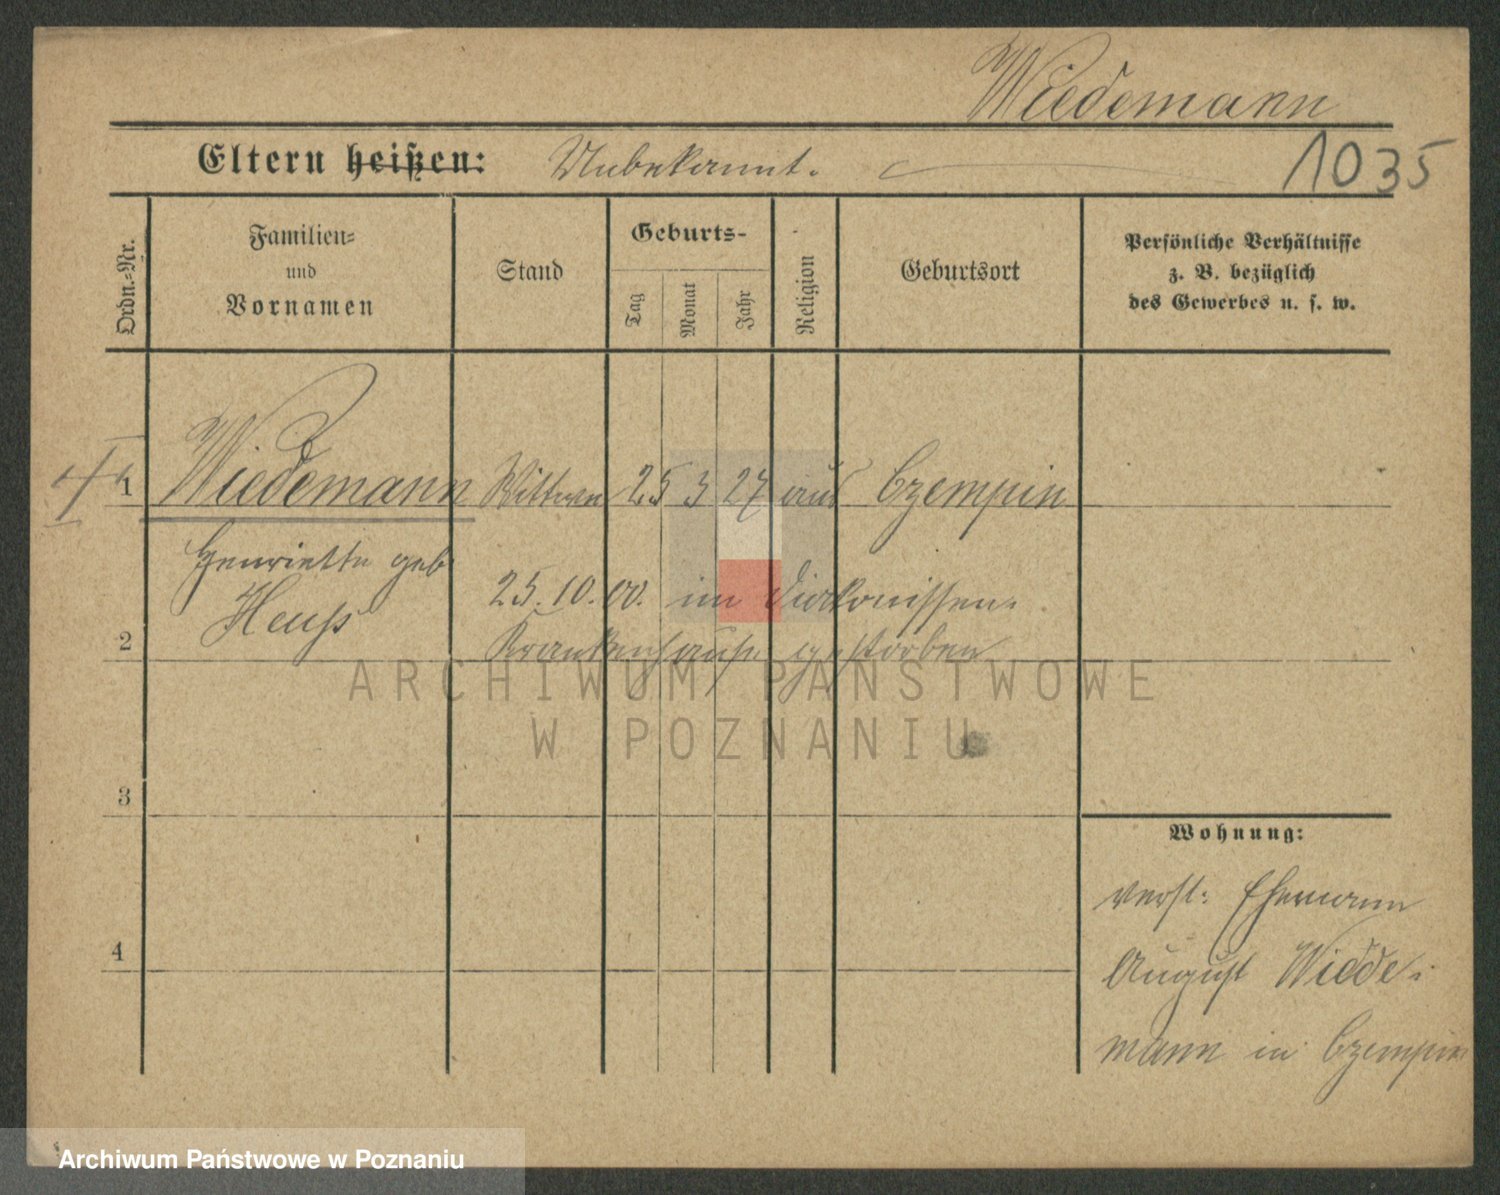 Wiedemann
Eltern heißen: Unbekannt.
1035
Ordn.=Nr.
Familien=
und
Vornamen
Stand
Geburts-
Tag
Monat
Jahr
Religion
Geburtsort
Persönliche Verhältnisse
z. B. bezüglich
des Gewerbes u. s. w.
1
Wiedemann Wittwe 25 3 27 aus Czempin
Henriette geb
Heuß
25.10.00. im Diakonissen-
Krankenhause gestorben
2
ARCHIWUM PAŃSTWOWE
W POZNANIU
3
Wohnung:
verst: Ehemann
August Wiede-
mann in Czempin
4
Archiwum Państwowe w Poznaniu